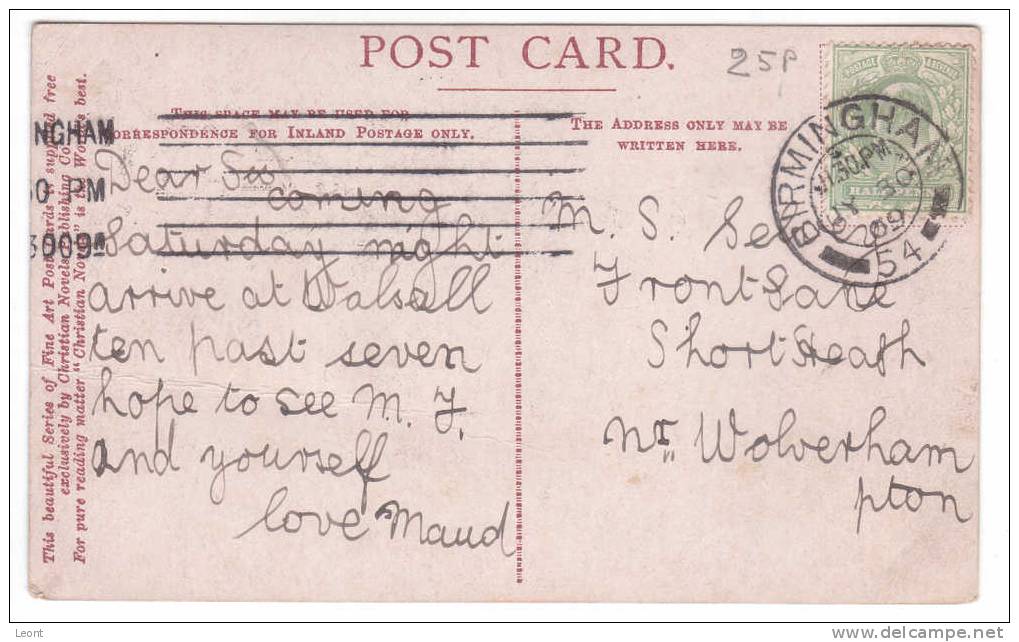 POST CARD.
25P
THIS SPACE MAY BE USED FOR
CORRESPONDENCE FOR INLAND POSTAGE ONLY.
THE ADDRESS ONLY MAY BE
WRITTEN HERE.
This beautiful Series of Fine Art Post Cards is supplied free
exclusively by Christian Novels Publishing Co.
For pure reading matter "Christian Novels" is the World's best.
NGHAM
30 PM
3009
POSTAGE & REVENUE
BIRMINGHAM
30 PM
09
54
Dear
coming
Saturday night
arrive at Walsall
ten past seven
hope to see M. J.
and yourself
love Maud
M. S.
Front Lane
Short Heath
Nr. Wolverham
pton
Leont
www.delcampe.net